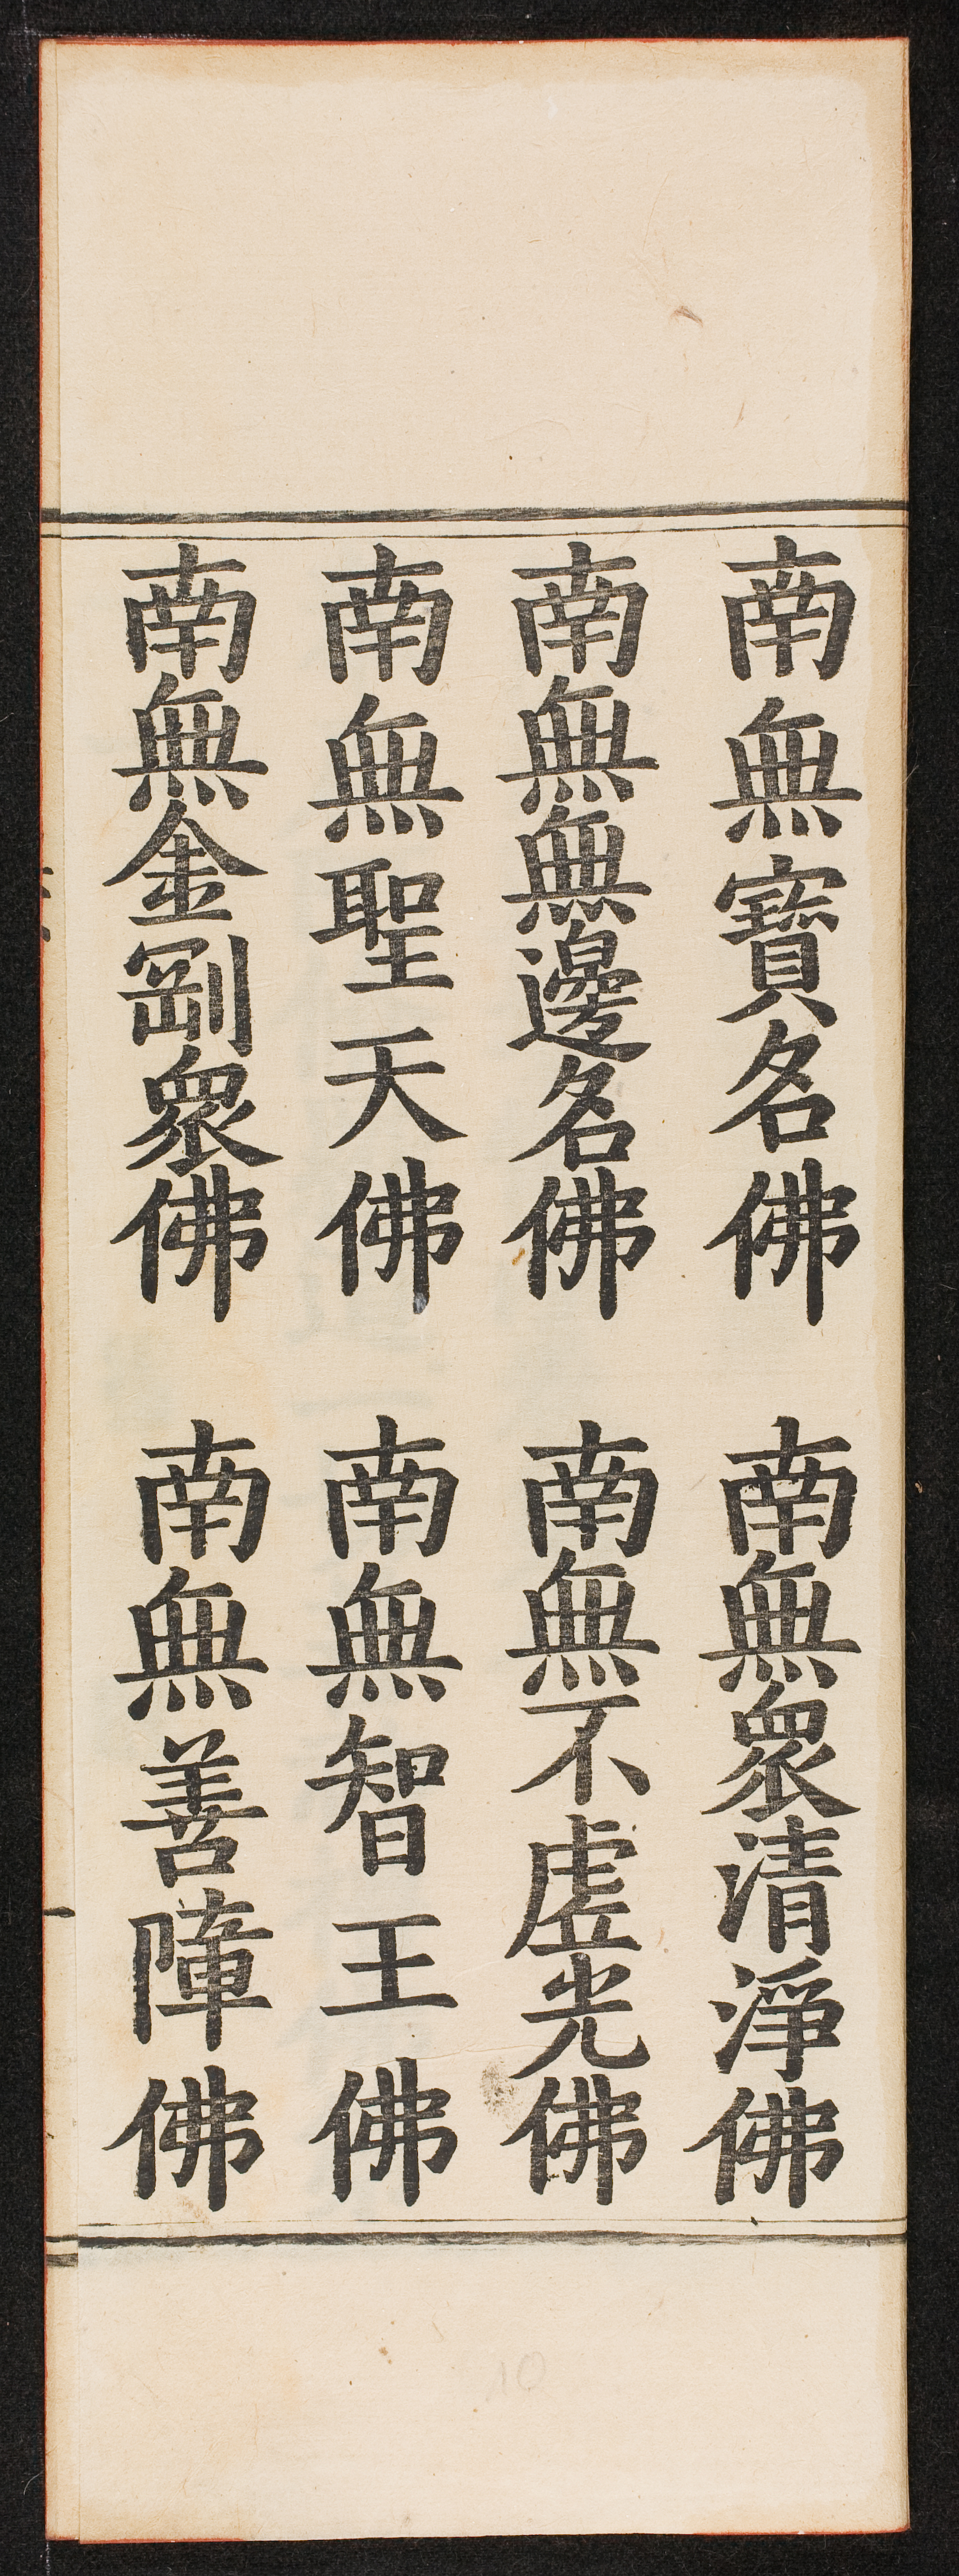 南無寶名佛 南無眾清淨佛
南無無邊名佛 南無不虛光佛
南無聖天佛 南無智王佛
南無金剛眾佛 南無善障佛
10